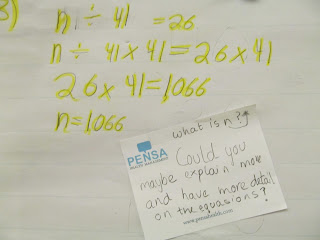 3)
n ÷ 41 = 26
n ÷ 41 x 41 = 26 x 41
26 x 41 = 1066
n = 1066
what is n?
PENSA
Could you
maybe explain more
and have more detail
on the equasions?
www.pensahealth.com